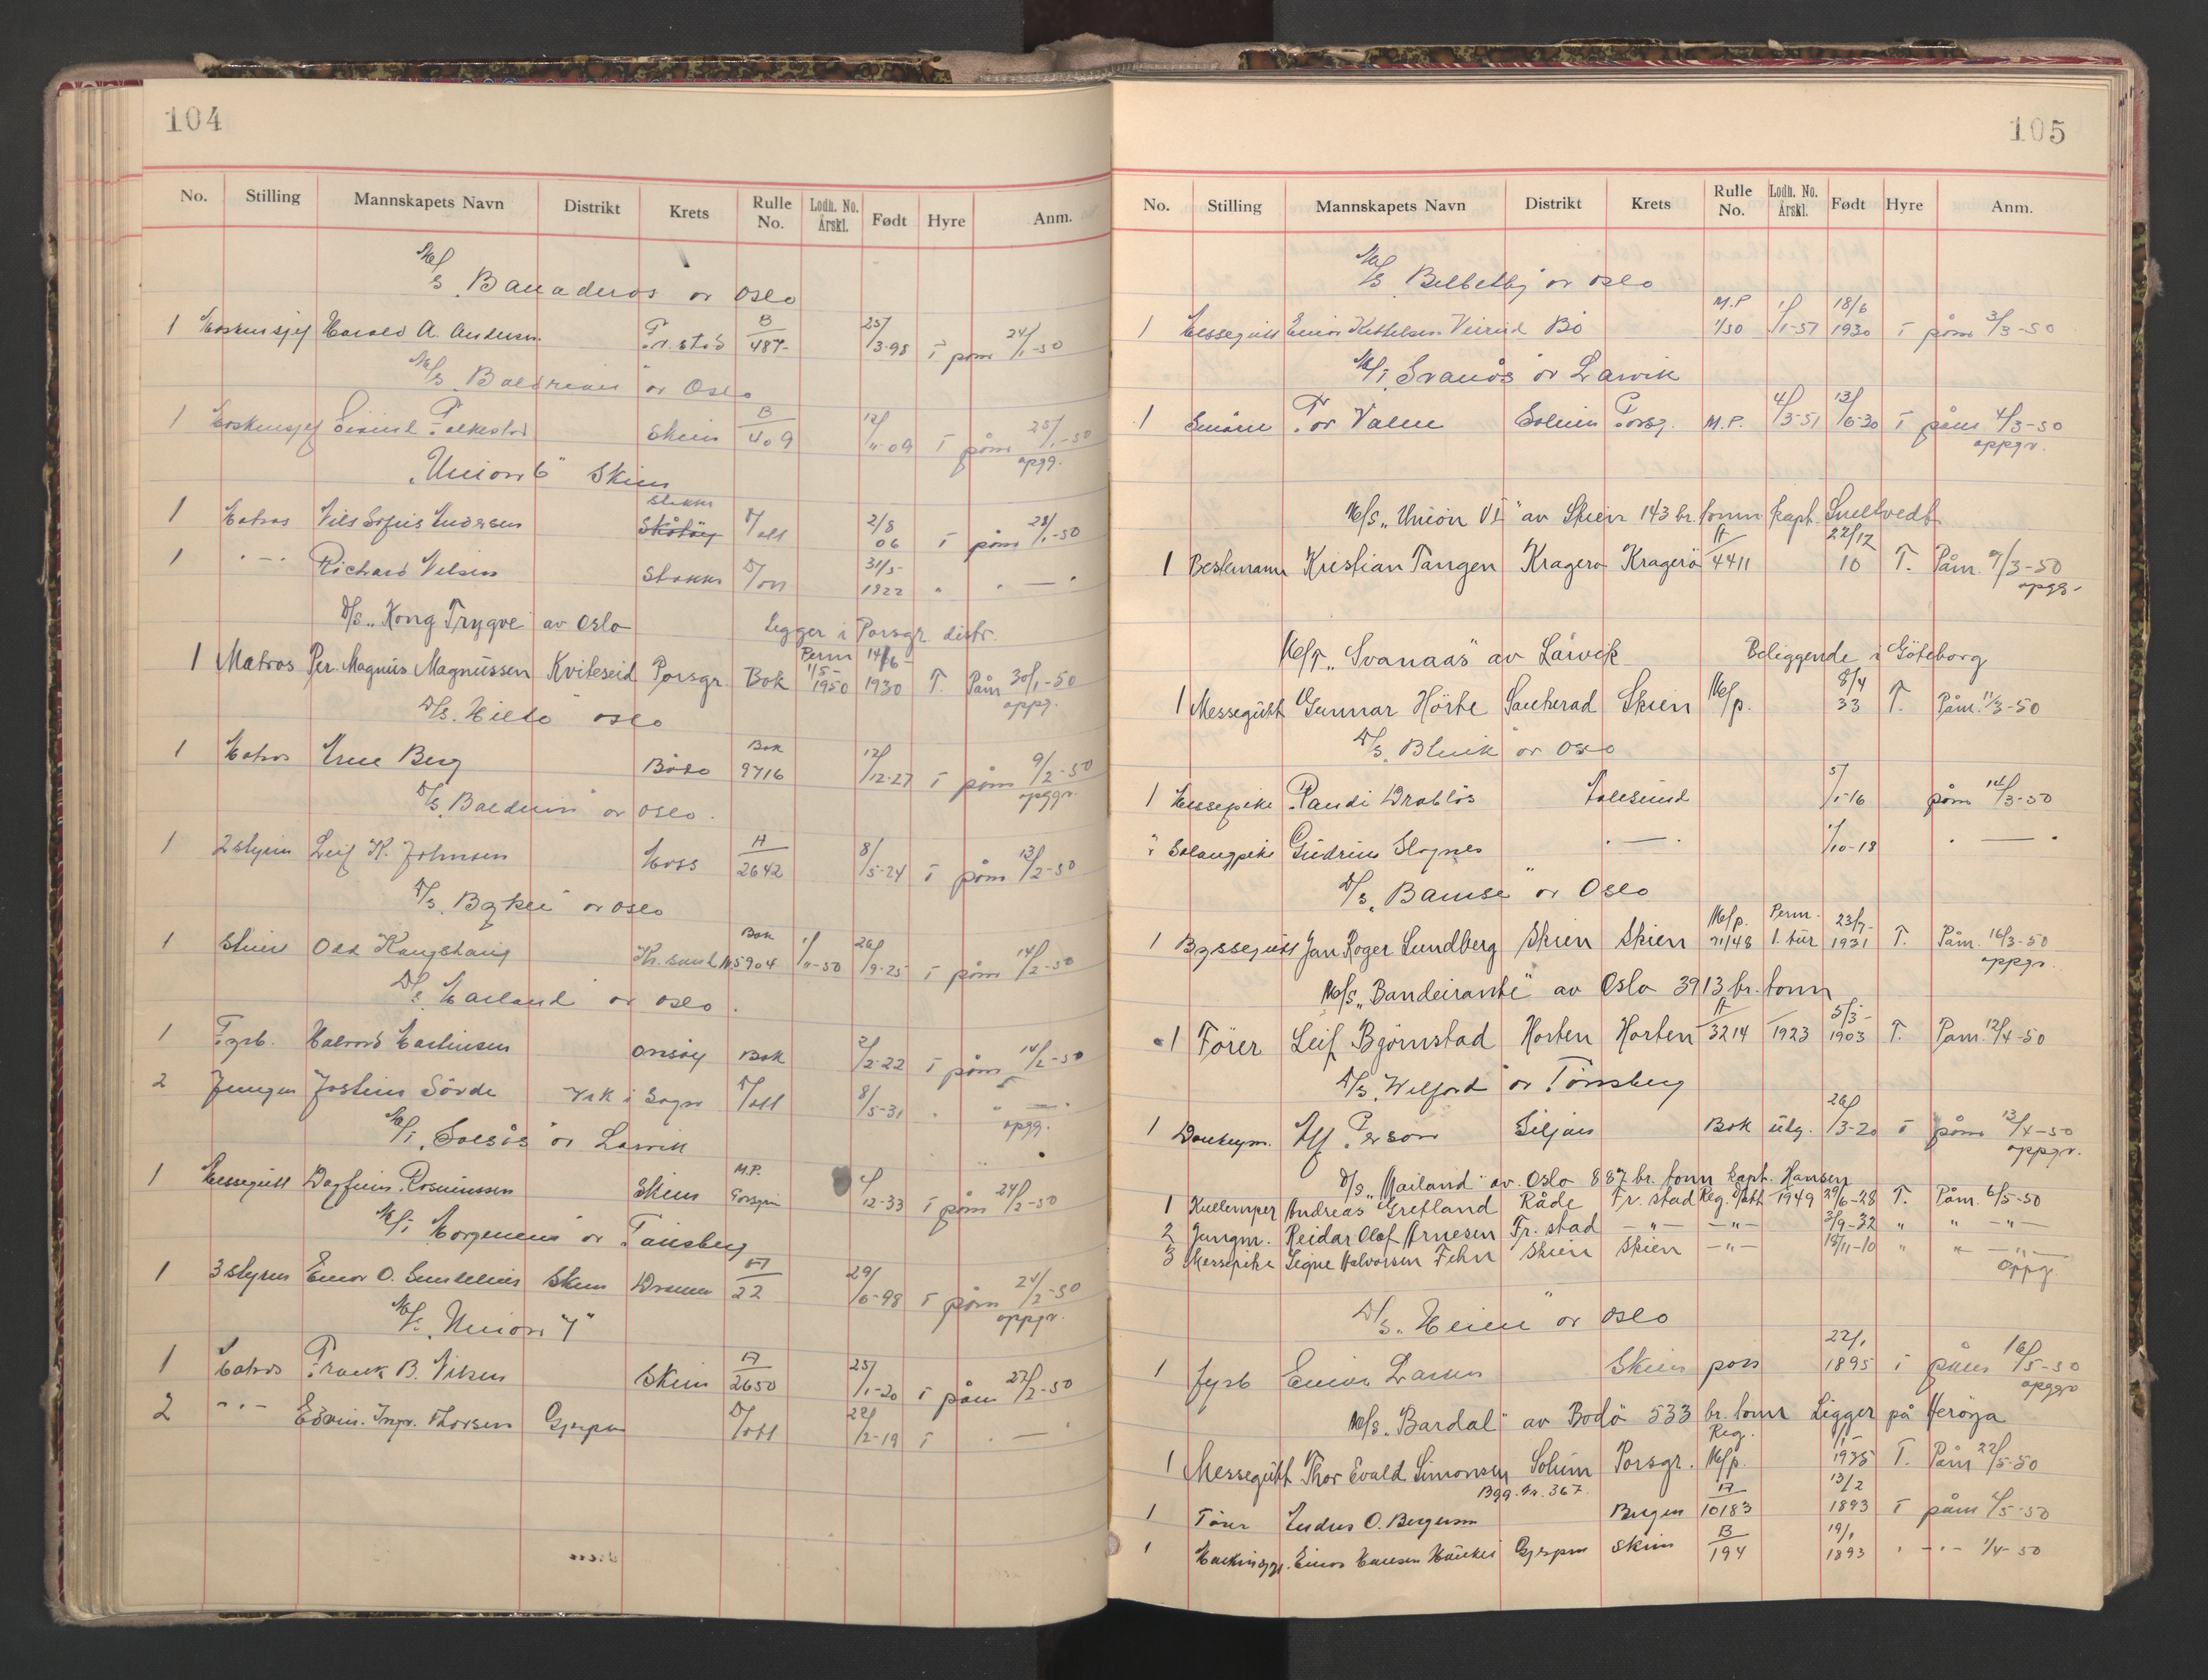 104
No. Stilling Mannskapets Navn Distrikt Krets Rulle No. Lodh. No. Årskl. Født Hyre Anm.
M/S "Banaderos" av Oslo
1 Harald A. Andersen Fr.stad B/487 25/3-98 T påm 24/1-50
M/S av Oslo
1 Skien B/409 12/11 09 T påm 25/1-50
oppg.
"Union 6" Skien
1 Matros Nils Sofus Andersen 2/8 06 T påm 28/1-50
1 -"- Richard Nilsen 31/5 1922 " " — "
D/S "Kong Trygve" av Oslo Ligger i Porsgr. distr.
1 Matros Per Magnus Magnussen Kviteseid Porsgr. Bok Perm 1/5-1950 14/6-1930 T. Påm 30/1-50
oppg.
D/S Oslo
1 Matros Arne Berg Bodø Bok 9716 12/12-27 T påm 9/2-50
oppgv.
D/S "Balduin" av Oslo
1 2 styrm Leif K. Johnsen Moss A/2642 8/5-24 T påm 13/2-50
D/S av Oslo
1 Kr.sund N Bok 5904 1/11-50 26/9-25 T påm 14/2-50
D/S "Mailand" av Oslo
1 Fyrb. Halvord Martinsen Onsøy Bok 2/2-22 T påm 14/2-50
2 Jungm Jostein Sørde Vik i Sogn 8/5-31 " " — "
oppg.
M/T "Solås" av Larvik
1 Messegutt Dagfinn Rasmussen Skien M.P. 12-33 T påm 24/2-50
M/T av Tønsberg
1 3 styrm Einar O. Skien A/22 29/6-98 T påm 24/2-50
oppgv.
M/S "Union 7"
1 Matros Frank B. Nilsen Skien A/2650 25/1-20 T påm 27/2-50
2 -"- Edvin Ingv. Thorsen Gjerpen 22/2-19 T " — "

105
No. Stilling Mannskapets Navn Distrikt Krets Rulle No. Lodh. No. Årskl. Født Hyre Anm.
M/S av Oslo
1 Messegutt Einar Bø M.P. 1/50 1/1-51 18/6 1930 T påm 3/3-50
M/T "Svanås" av Larvik
1 Tor Solum Porsg. M.P. 4/3-51 13/6-30 T påm 4/3-50
oppgv.
M/S "Union VI" av Skien 143 br. tonn Kapt. Sneltvedt
1 Bestemann Kristian Tangen Kragerø Kragerø A/4411 22/12 10 T. Påm. 9/3-50
oppg.
M/T "Svanaas" av Larvik Beliggende i Göteborg
1 Messegutt Gunnar Hörte Sauherad Skien M/p. 8/4 33 T. Påm. 11/3-50
D/S av Oslo
1 Messepike Randi Drabløs Aalesund 5/1-16 påm 14/3-50
" Salongpike " — " 1/10-18 " — "
D/S "Bamse" av Oslo
1 Byssegutt Jan Roger Lundberg Skien Skien M/p. 71/48 Perm. 1. tur 23/7-1931 T. Påm. 16/3-50
oppgv.
M/S "Bandeirante" av Oslo 3913 br. tonn
1 Fører Leif Bjørnstad Horten Horten A/3214 1923 5/3-1903 T. Påm. 12/4-50
D/S "Wilford" av Tønsberg
1 Donkeym. Alf Person Siljan Bok utg. 26/3-20 T påm 13/4-50
oppgv.
D/S "Mailand" av Oslo 887 br. tonn Kapt. Hansen
1 Kullemper Andreas Gretland Råde Fr. stad Reg. 1949 29/6-28 T. Påm. 6/5-50
2 Jungm. Reidar Olaf Arnesen Fr. stad -"- -"- 3/9-32 " " -"-
3 Messepike Signe Halvorsen Fehn Skien Skien -"- 18/11-10 " " -"-
Oppg.
D/S av Oslo
1 Fyrb Einar Larsen Skien pass 22/1 1895 T påm 16/5-50
oppgv
M/S "Bardal" av Bodø 533 br. tonn Ligger på Herøya
1 Messegutt Thor Evald Simonsen Solum Porsgr. Reg. M/p. 1935 T. Påm 22/5-50
Bgg. Nr. 367.
1 Fører Endres O. Bergersen Bergen A/10183 13/2 1893 T påm 2/5-50
1 Einar Hansen Gjerpen Skien B/194 19/1 1893 " -"- 1/4-50